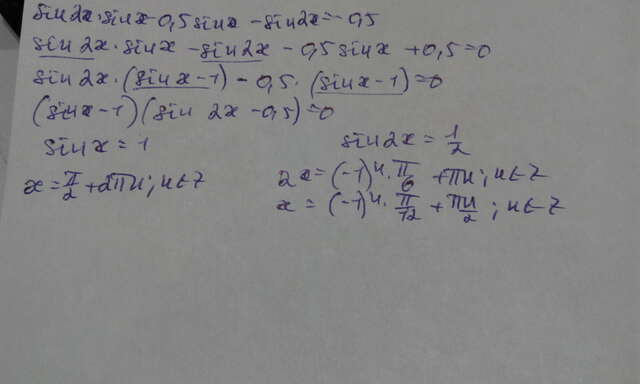 sin2x·sinx-0,5sinx-sin2x=-0,5
sin2x·sinx-sin2x-0,5sinx+0,5=0
sin2x·(sinx-1)-0,5·(sinx-1)=0
(sinx-1)(sin 2x-0,5)=0
sinx=1 sin2x=1/2
x=π/2+2πn; n∈Z 2x=(-1)ⁿ·π/6+πn; n∈Z
x=(-1)ⁿ·π/12+πn/2; n∈Z